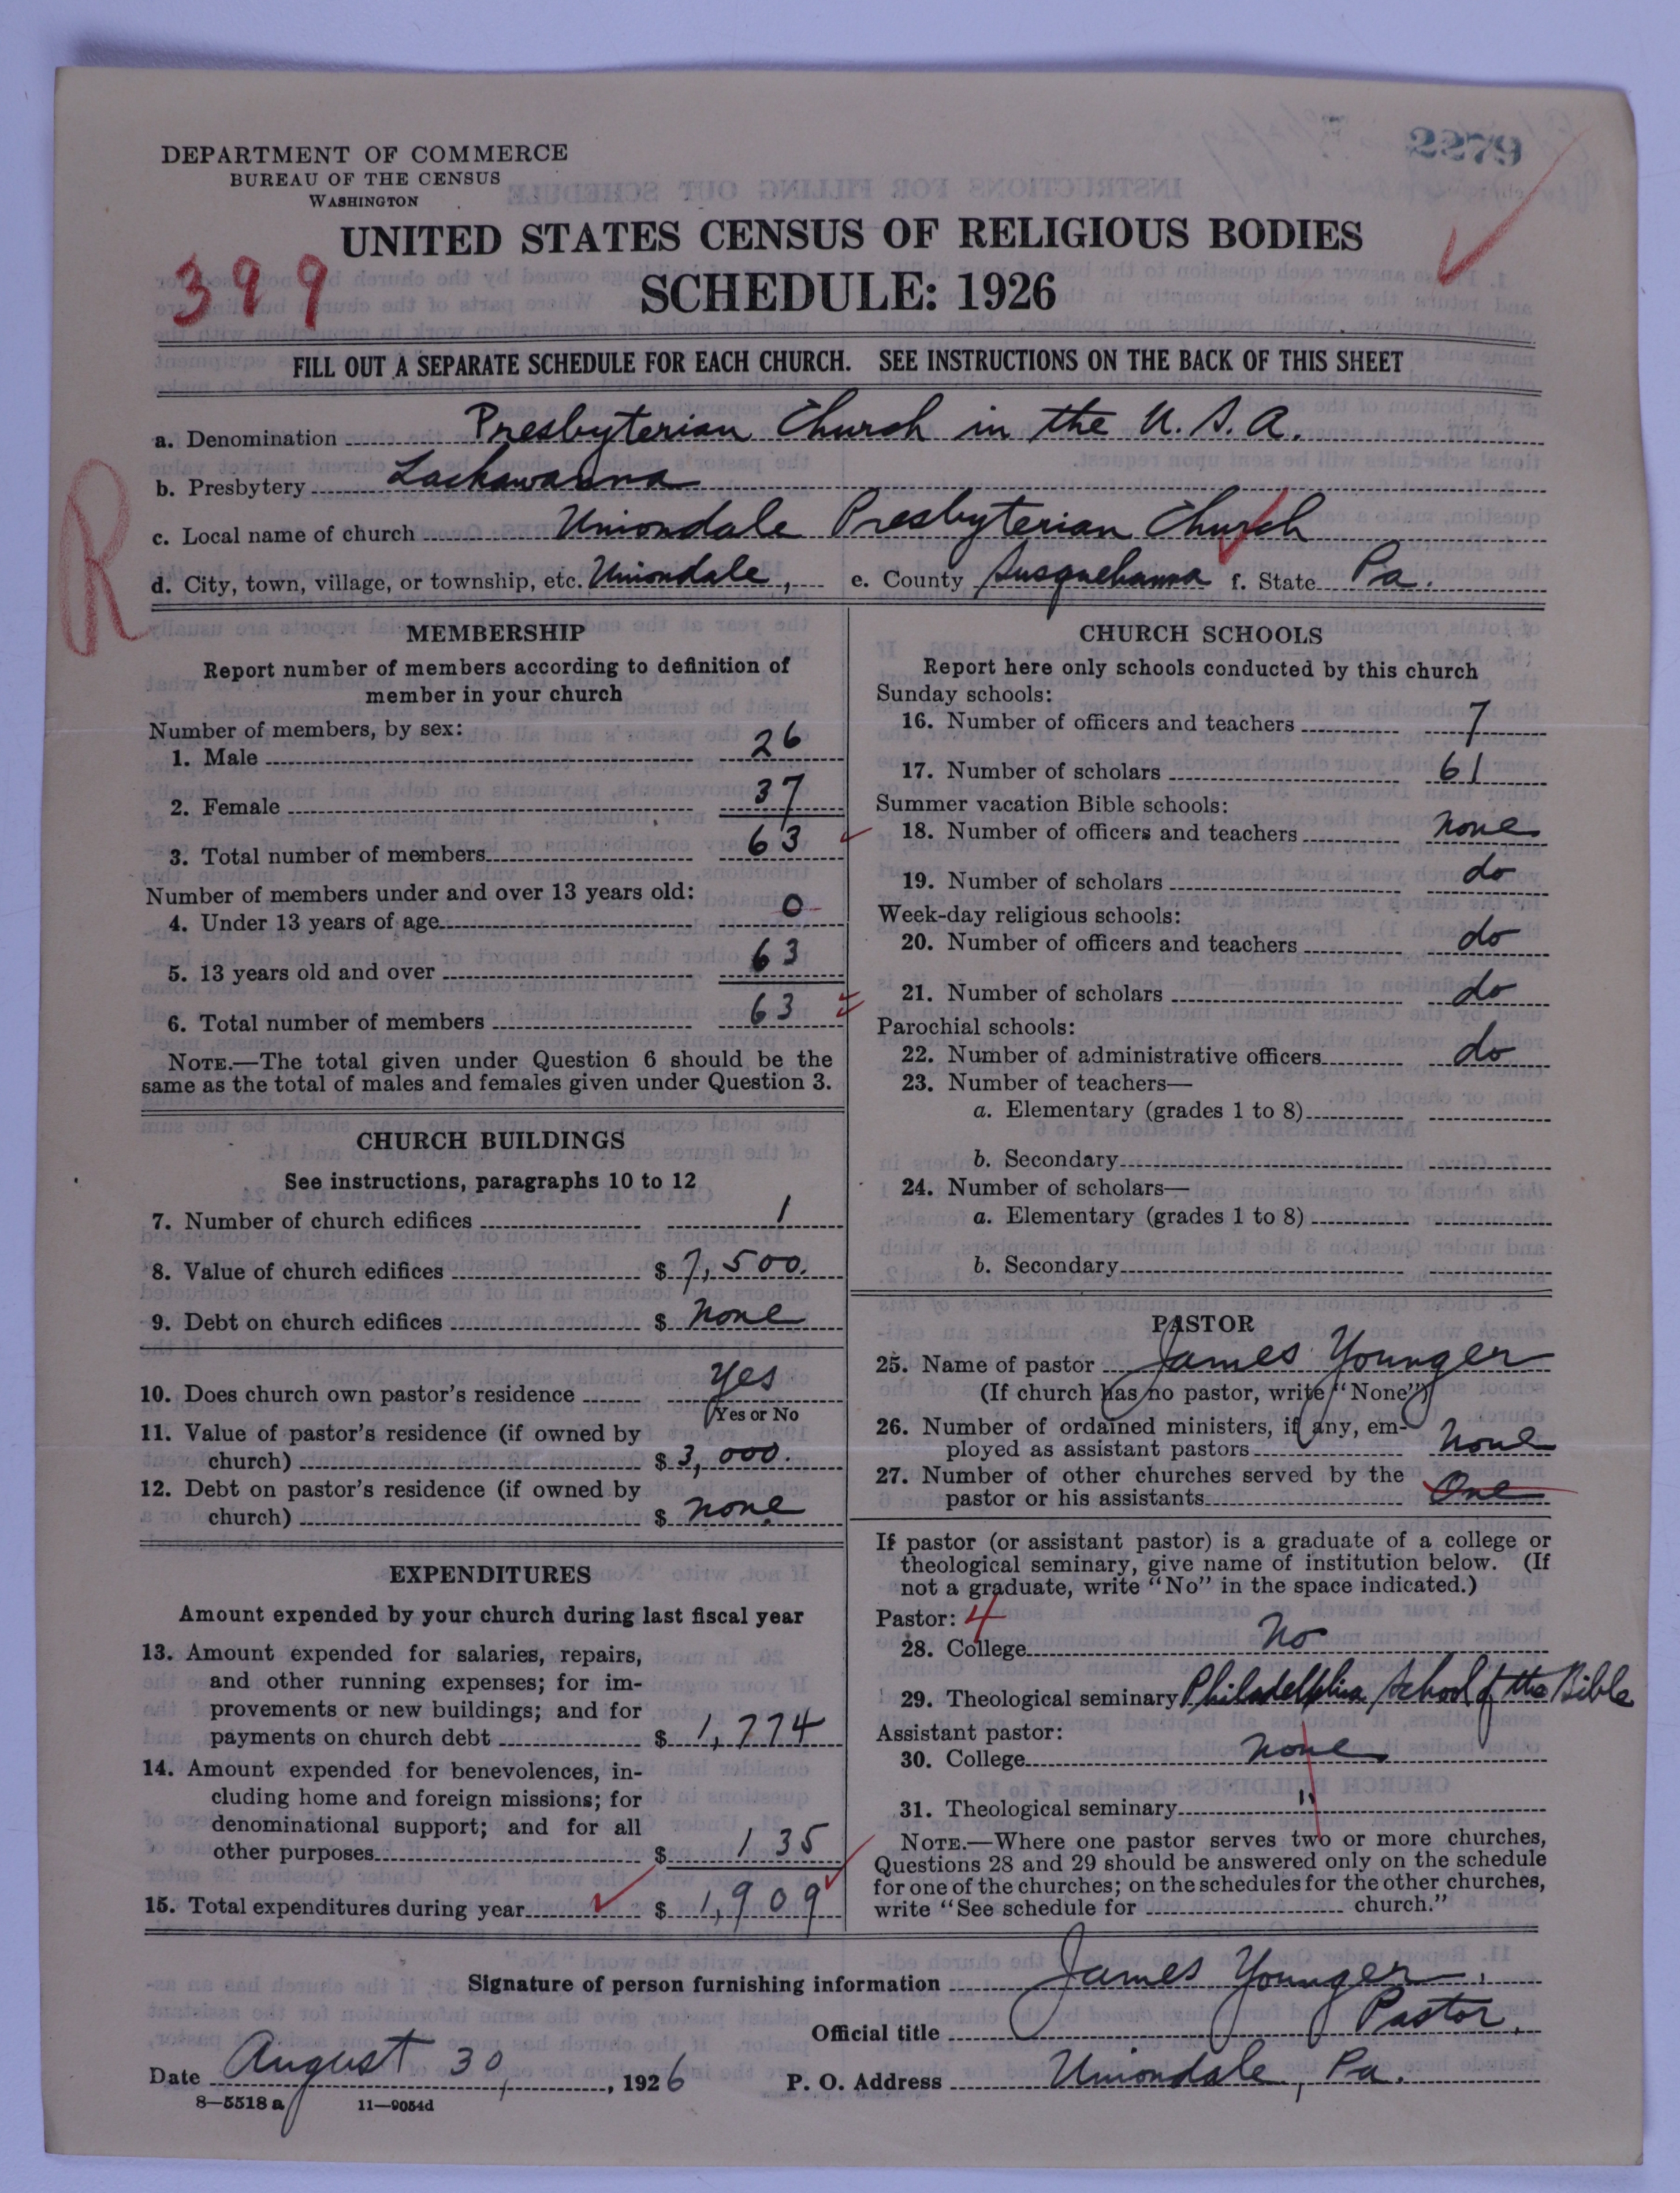 2279
DEPARTMENT OF COMMERCE
BUREAU OF THE CENSUS
WASHINGTON
UNITED STATES CENSUS OF RELIGIOUS BODIES
399
SCHEDULE: 1926
FILL OUT A SEPARATE SCHEDULE FOR EACH CHURCH. SEE INSTRUCTIONS ON THE BACK OF THIS SHEET
a. Denomination Presbyterian Church in the U. S. A.
b. Presbytery Lackawanna
R
c. Local name of church Uniondale Presbyterian Church
d. City, town, village, or township, etc. Uniondale, e. County Susquehanna f. State Pa.
MEMBERSHIP
Report number of members according to definition of
member in your church
Number of members, by sex:
1. Male 26
2. Female 37
3. Total number of members 63
Number of members under and over 13 years old:
4. Under 13 years of age 0
5. 13 years old and over 63
6. Total number of members 63
NOTE.—The total given under Question 6 should be the
same as the total of males and females given under Question 3.
CHURCH BUILDINGS
See instructions, paragraphs 10 to 12
7. Number of church edifices 1
8. Value of church edifices $ 7,500.
9. Debt on church edifices $ none
10. Does church own pastor's residence Yes
Yes or No
11. Value of pastor's residence (if owned by
church) $ 3,000.
12. Debt on pastor's residence (if owned by
church) $ none
EXPENDITURES
Amount expended by your church during last fiscal year
13. Amount expended for salaries, repairs,
and other running expenses; for im-
provements or new buildings; and for
payments on church debt $ 1,774
14. Amount expended for benevolences, in-
cluding home and foreign missions; for
denominational support; and for all
other purposes $ 135
15. Total expenditures during year $ 1,909
CHURCH SCHOOLS
Report here only schools conducted by this church
Sunday schools:
16. Number of officers and teachers 7
17. Number of scholars 61
Summer vacation Bible schools:
18. Number of officers and teachers none
19. Number of scholars do
Week-day religious schools:
20. Number of officers and teachers do
21. Number of scholars do
Parochial schools:
22. Number of administrative officers do
23. Number of teachers—
a. Elementary (grades 1 to 8)
b. Secondary
24. Number of scholars—
a. Elementary (grades 1 to 8)
b. Secondary
PASTOR
25. Name of pastor James Younger
(If church has no pastor, write "None")
26. Number of ordained ministers, if any, em-
ployed as assistant pastors None
27. Number of other churches served by the
pastor or his assistants One
If pastor (or assistant pastor) is a graduate of a college or
theological seminary, give name of institution below. (If
not a graduate, write "No" in the space indicated.)
Pastor: 4
28. College No
29. Theological seminary Philadelphia School of the Bible
Assistant pastor:
30. College none
31. Theological seminary "
NOTE.—Where one pastor serves two or more churches,
Questions 28 and 29 should be answered only on the schedule
for one of the churches; on the schedules for the other churches,
write "See schedule for church."
Signature of person furnishing information James Younger
Official title Pastor.
Date August 30, 1926 P. O. Address Uniondale, Pa.
8—5518 a 11—9054d